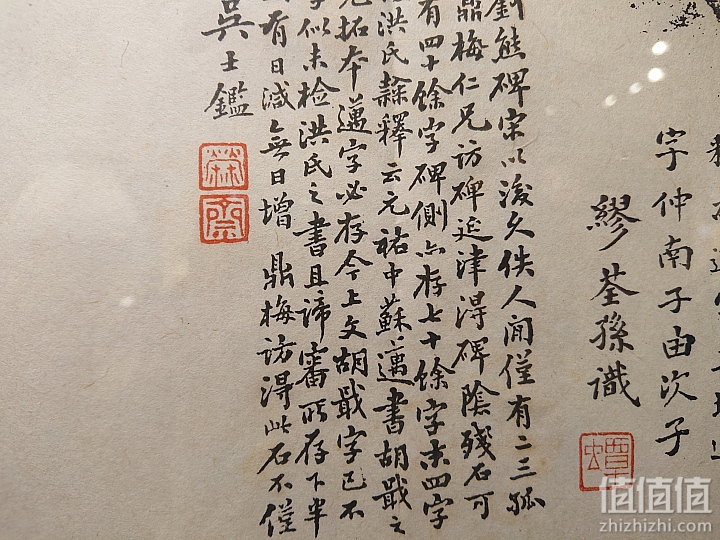 字仲南子由次子
繆荃孫識
劉熊碑宋以後久佚人間僅有二三孤
鼎梅仁兄訪碑延津得碑陰殘石可
有四十餘字碑側亦存七十餘字末四字
洪氏隸釋云元祐中蘇邁書胡戢之
拓本邁字必存今上文胡戢字已不
似未檢洪氏之書且諦審所存下半
有日減無日增 鼎梅訪得此石不僅
吳士鑑
值值值
zhizhizhi.com